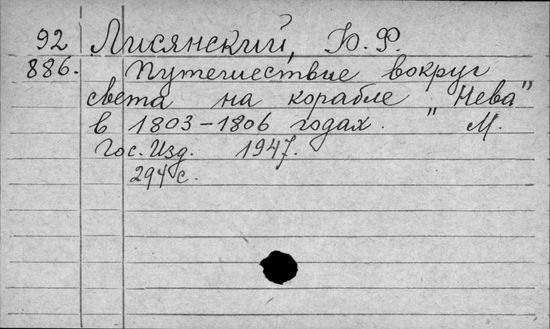 92 Лисянский, Ю. Ф.
886. Путешествие вокруг
света на корабле "Нева"
в 1803-1806 годах. М.
Гос. Изд. 1947.
294 с.